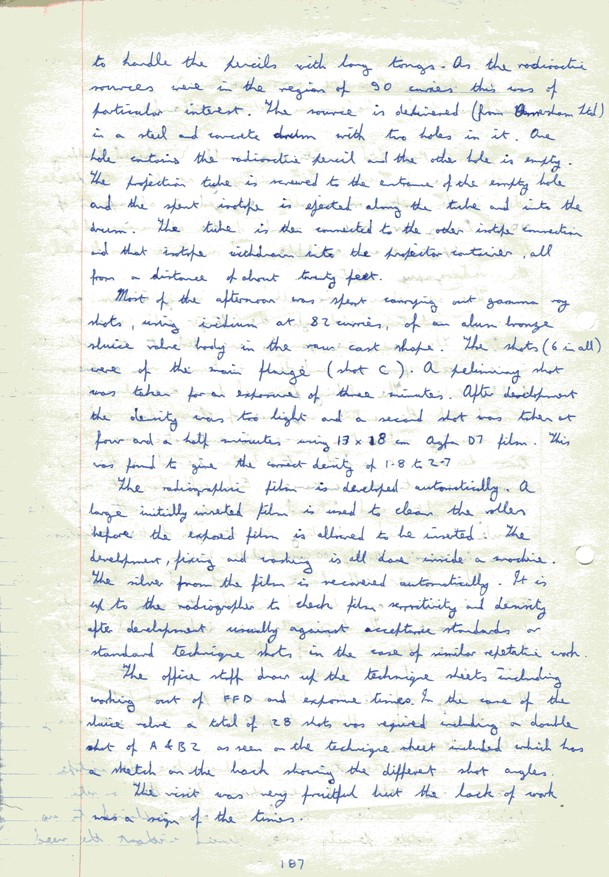 to handle the pencils with long tongs. As the radioactive
sources were in the region of 90 curies this was of
particular interest. The source is delivered (from Amersham Ltd)
in a steel and concrete drum with two holes in it. One
hole contains the radioactive pencil and the other hole is empty.
The projection tube is screwed to the entrance of the empty hole
and the spent isotope is ejected along the tube and into the
drum. The tube is then connected to the other isotope connection
and that isotope withdrawn into the projector container, all
from a distance of about twenty feet.
Most of the afternoon was spent carrying out gamma ray
shots, using iridium at 82 curries, of an alum bronze
sluice valve body in the raw cast shape. The shots (6 in all)
were of the main flange (shot C). A peliminy shot
was taken for an exposure of three minutes. After development
the density was too light and a second shot was taken at
four and a half minutes using 13 x 18 cm Agfa D7 film. This
was found to give the correct density of 1.8 to 2.7
The radiographic film is developed automatically. A
large initially inserted film is used to clean the rollers
before the exposed film is allowed to be inserted. The
development, fixing and washing is all done inside a machine.
The silver from the film is recovered automatically. It is
up to the radiographer to check film sensitivity and density
after development usually against acceptance standards or
standard technique shots in the case of similar repetative work.
The office staff draw up the technique sheets including
working out of FFD and exposure times. In the case of the
sluice valve a total of 28 shots was required including a double
shot of A & B2 as seen on the technique sheet included which has
a sketch on the back showing the different shot angles.
The visit was very fruitful but the lack of work
was a sign of the times.
187